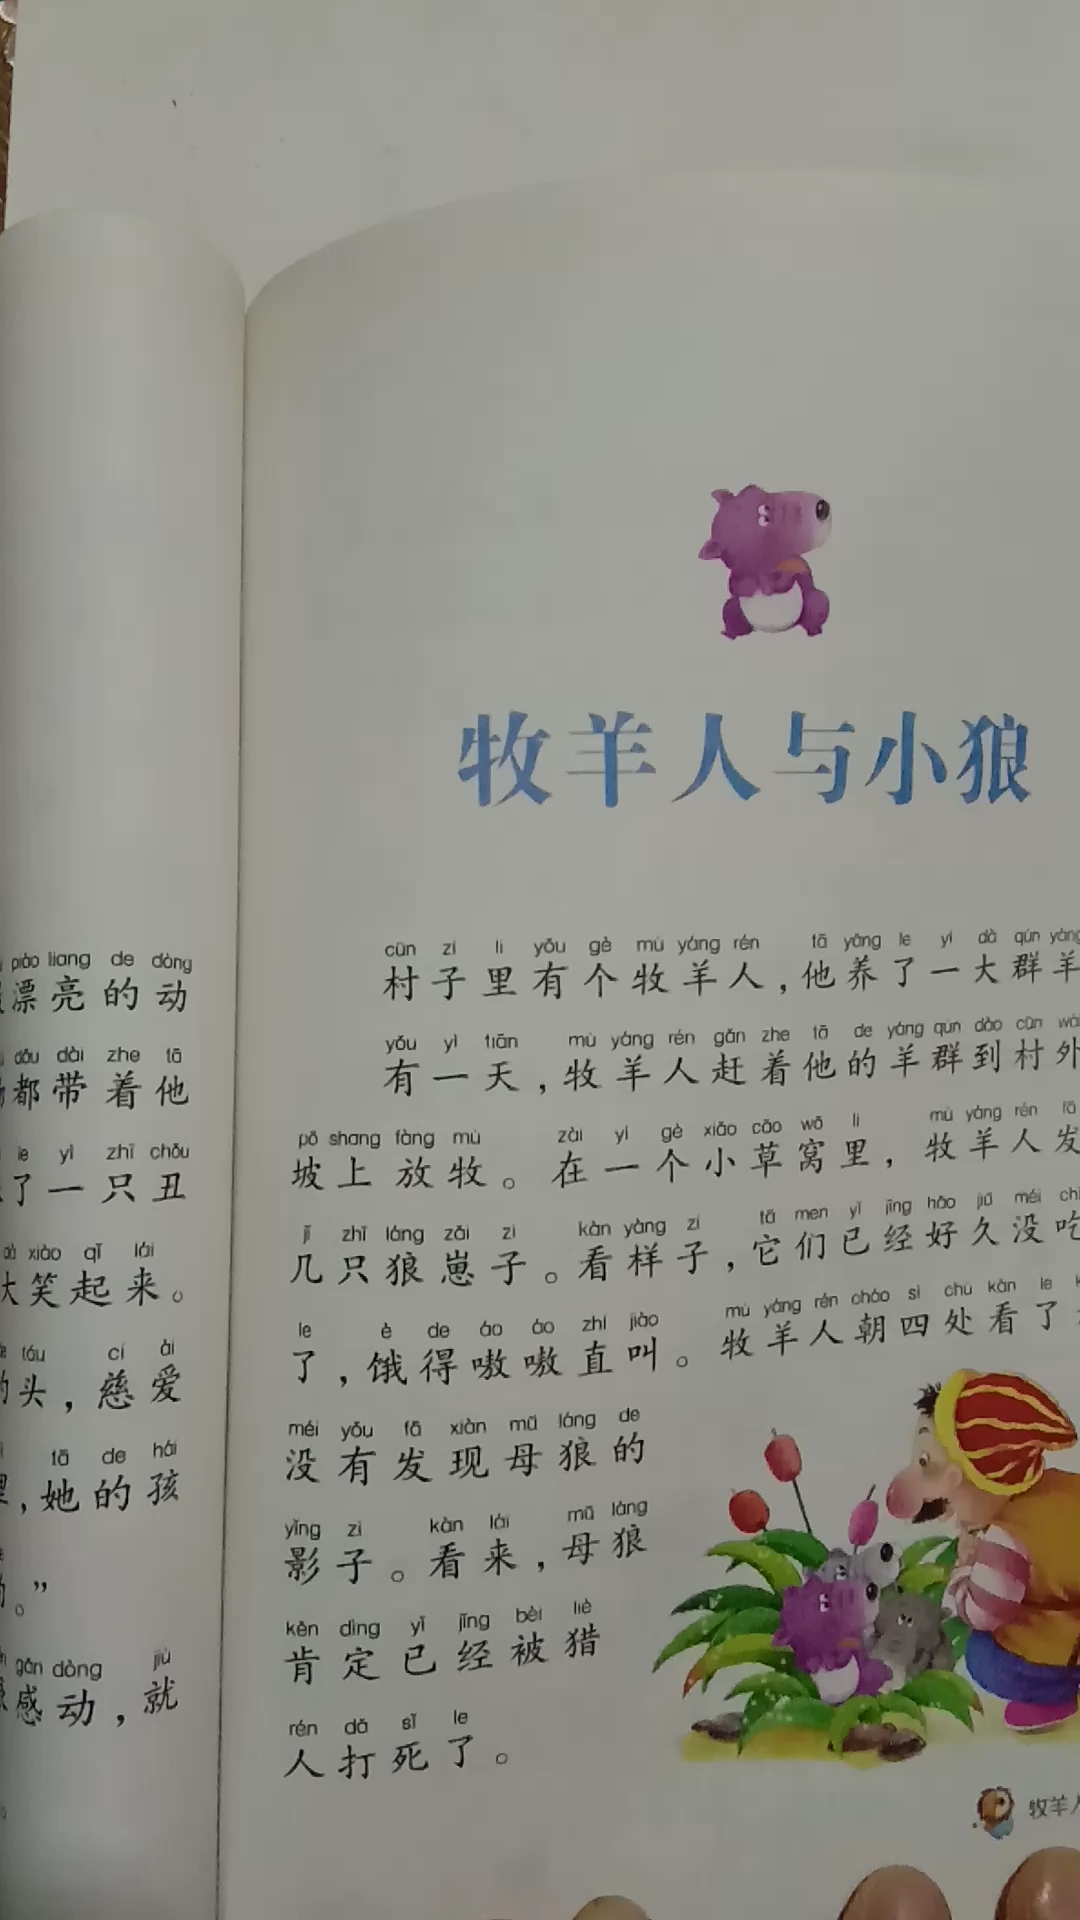 piào liang de dòng
漂亮的动
dōu dài zhe tā
都带着他
le yì zhī chǒu
了一只丑
xiào qǐ lái
大笑起来。
tóu cí ài
的头，慈爱
tā de hái
，她的孩
。”
gǎn dòng jiù
感动，就
牧羊人与小狼
cūn zi li yǒu gè mù yáng rén tā yǎng le yí dà qún yáng
村子里有个牧羊人，他养了一大群羊
yǒu yì tiān mù yáng rén gǎn zhe tā de yáng qún dào cūn wài
有一天，牧羊人赶着他的羊群到村外
pō shang fàng mù zài yí gè xiǎo cǎo wō li mù yáng rén fā
坡上放牧。在一个小草窝里，牧羊人发
jǐ zhī láng zǎi zi kàn yàng zi tā men yǐ jīng hǎo jiǔ méi chī
几只狼崽子。看样子，它们已经好久没吃
le è de áo áo zhí jiào mù yáng rén cháo sì chù kàn le
了，饿得嗷嗷直叫。牧羊人朝四处看了
méi yǒu fā xiàn mǔ láng de
没有发现母狼的
yǐng zi kàn lái mǔ láng
影子。看来，母狼
kěn dìng yǐ jīng bèi liè
肯定已经被猎
rén dǎ sǐ le
人打死了。
牧羊人